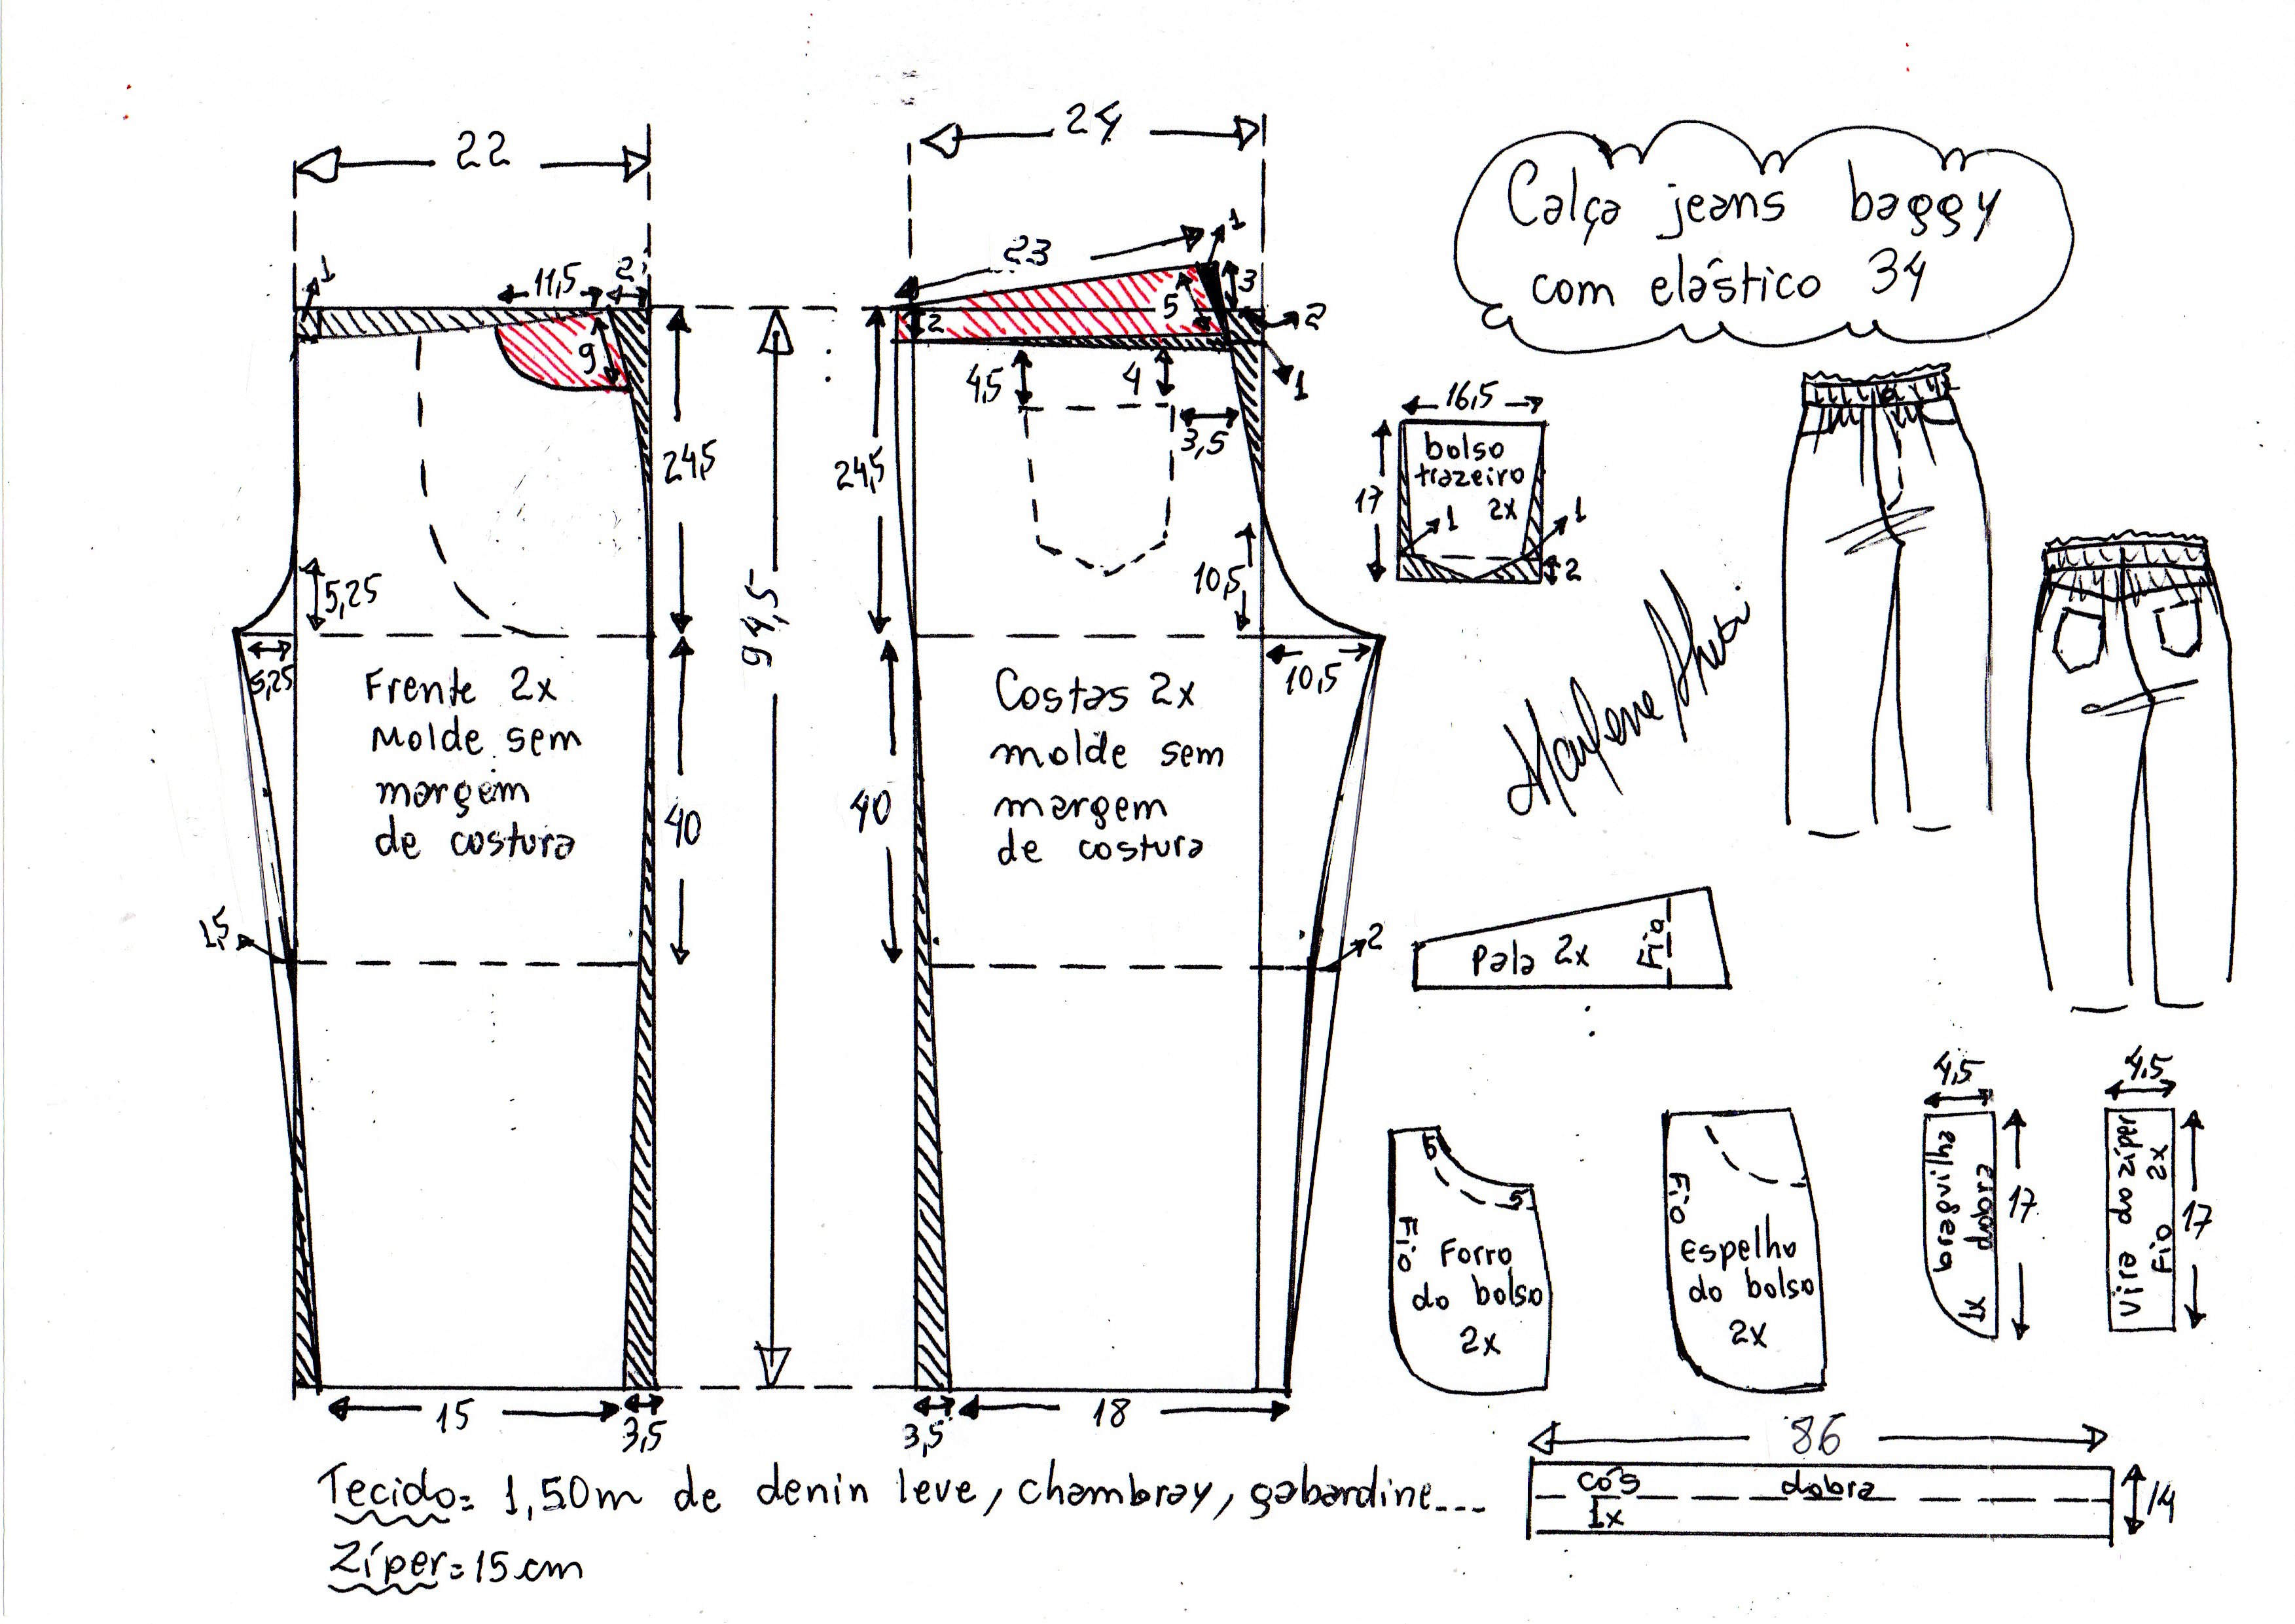 22
24
Calça jeans baggy
com elástico 34
1
11,5
2
23
1
3
9
2
5
2
1
4,5
4
3,5
24,5
24,5
94,5
16,5
bolso
trazeiro
2x
17
1
1
2
5,25
5,25
10,5
10,5
Frente 2x
Molde sem
margem
de costura
40
Costas 2x
molde sem
margem
de costura
40
1,5
2
Pala 2x
Fio
5
5
Fio
Forro
do bolso
2x
Fio
Espelho
do bolso
2x
4,5
braguilha
dobra
1x
17
4,5
Vira do zíper
Fio 2x
17
15
3,5
3,5
18
86
cós
dobra
1x
14
Tecido= 1,50m de denin leve, chambray, gabardine...
Zíper=15cm